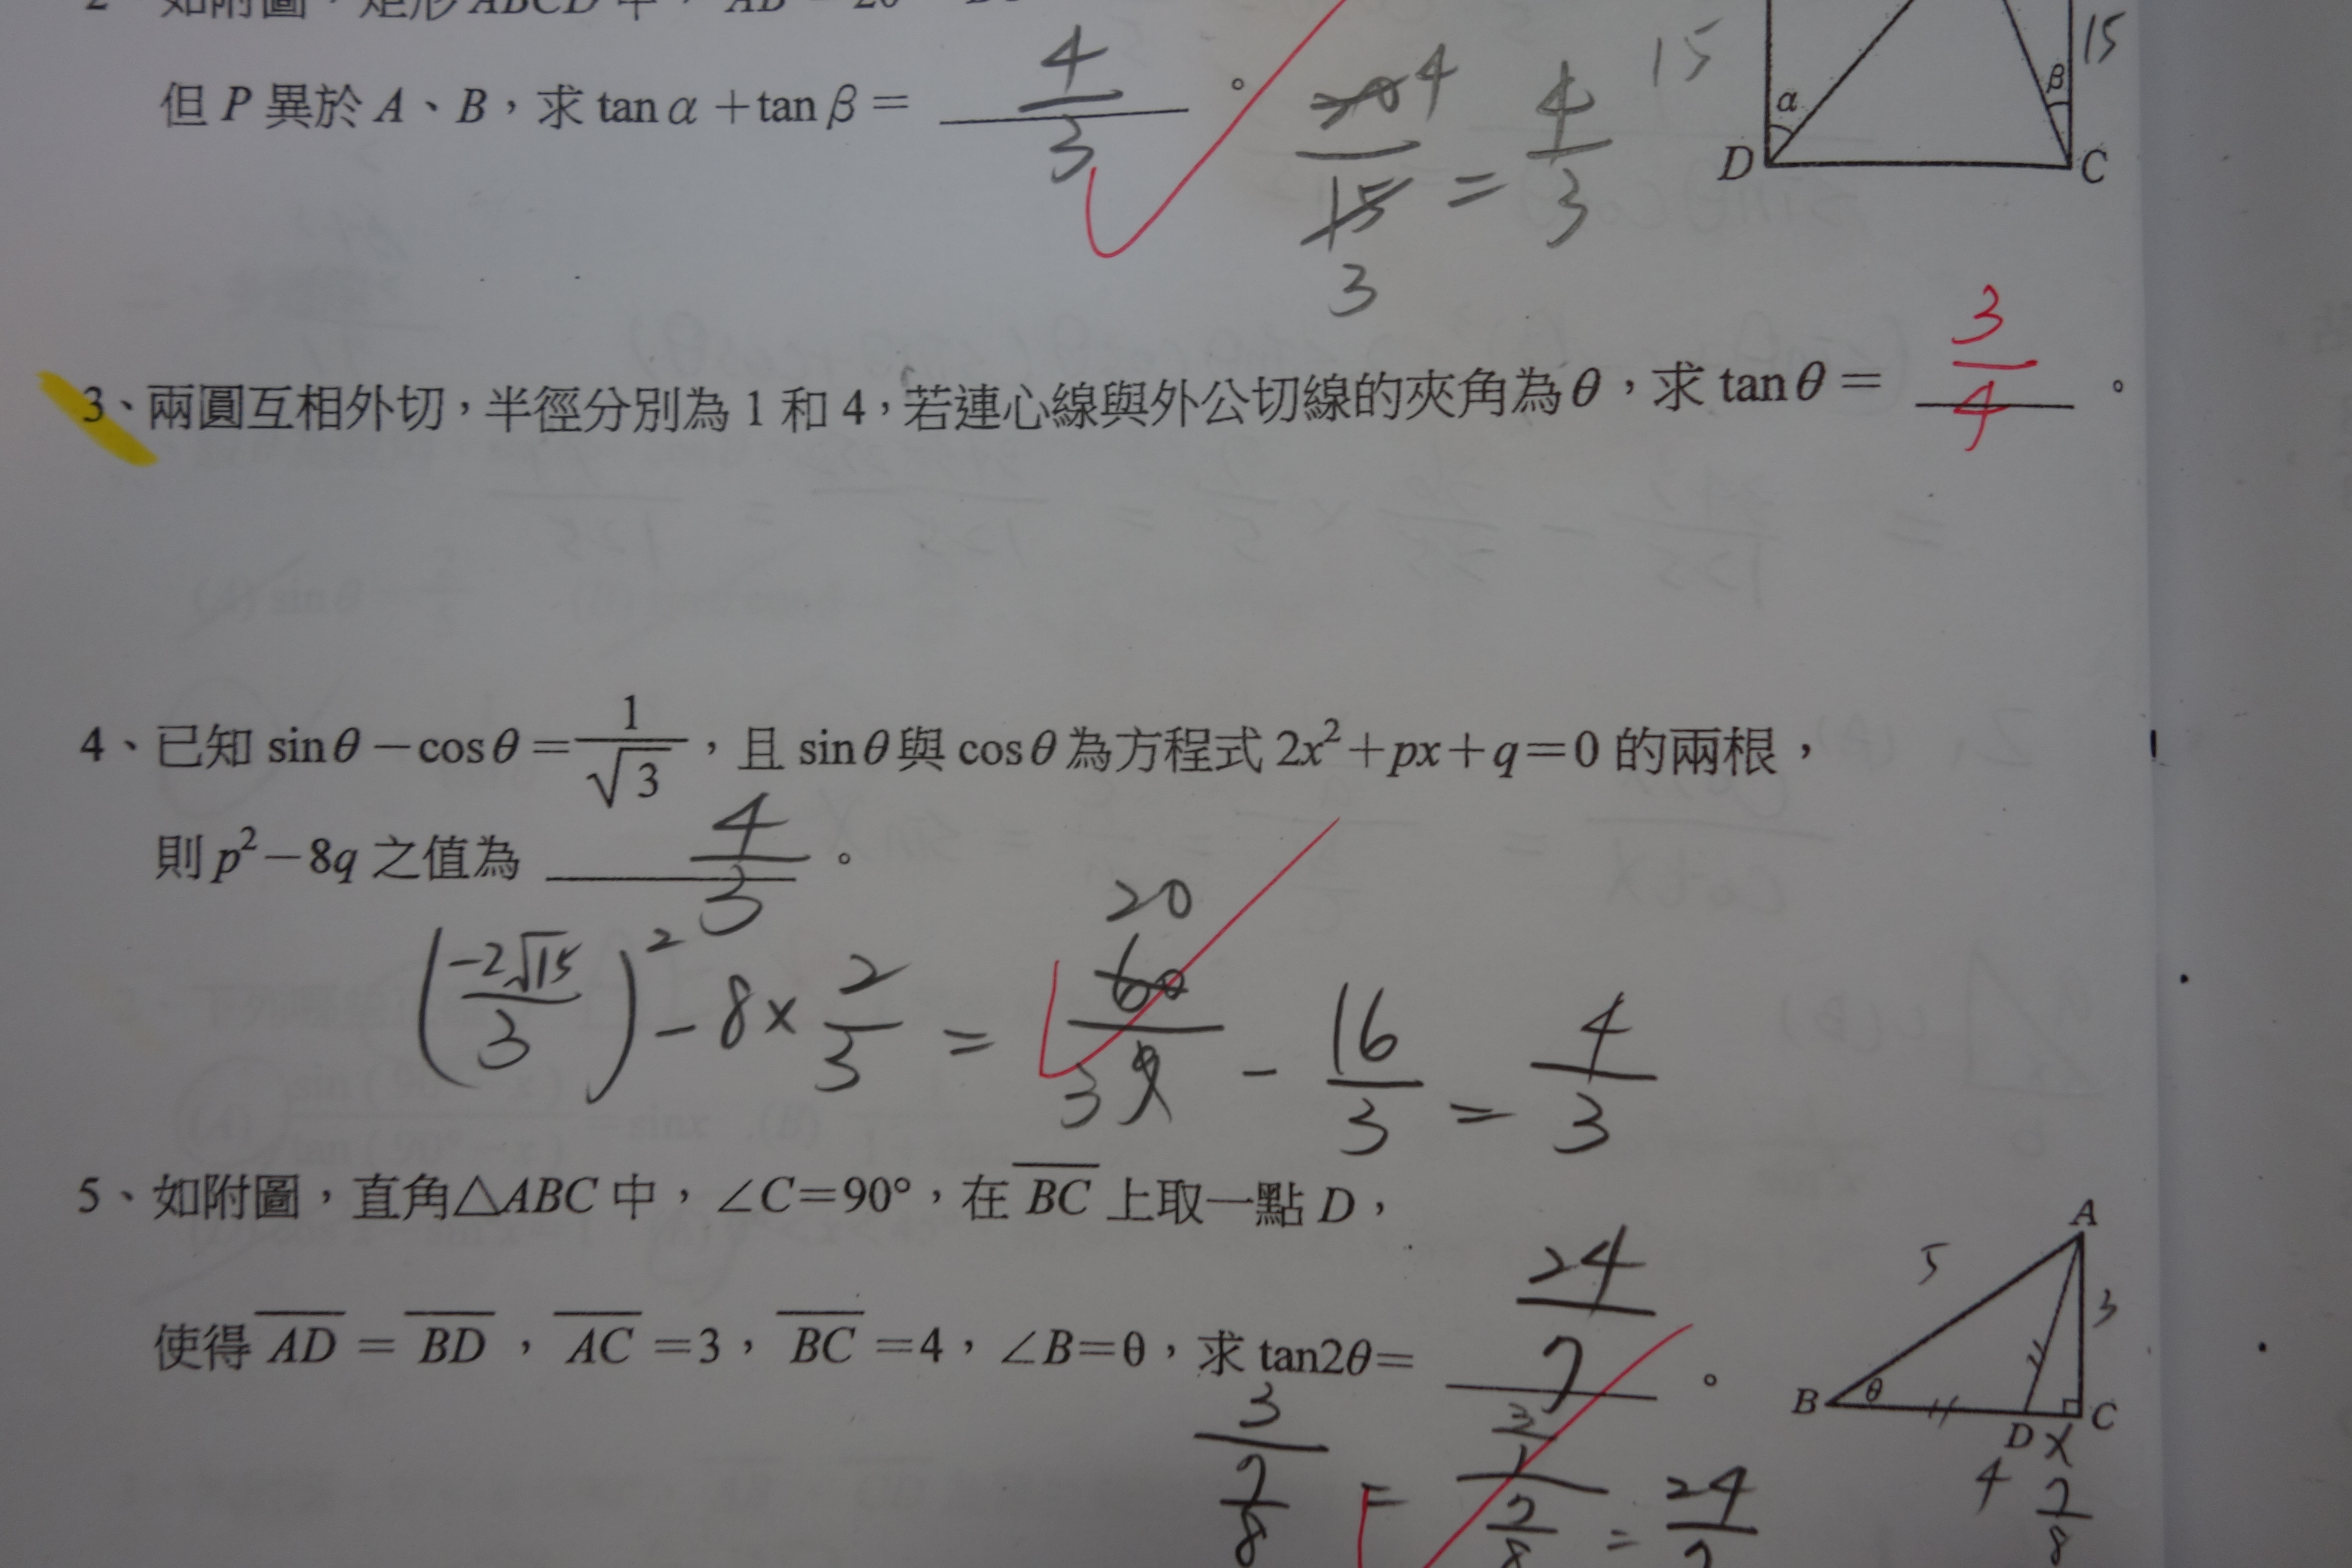 但 P 異於 A、B，求 tanα+tanβ= 4/3 。
20 4 / 15 3 = 4/3
15
15
α
β
D
C
3、兩圓互相外切，半徑分別為 1 和 4，若連心線與外公切線的夾角為θ，求 tanθ= 3/4 。
4、已知 sinθ－cosθ=1/√3，且 sinθ與 cosθ為方程式 2x²+px+q=0 的兩根，
則 p²－8q 之值為 4/3 。
(-2√15/3)² - 8 × 2/3 = 60 20 / 9 3 - 16/3 = 4/3
5、如附圖，直角△ABC 中，∠C=90°，在 BC 上取一點 D，
使得 AD = BD，AC =3，BC =4，∠B=θ，求 tan2θ= 24/7 。
3/(7/8) = (3/1)/(7/8) = 24/7
A
5
3
B
θ
D
x
C
4
7/8